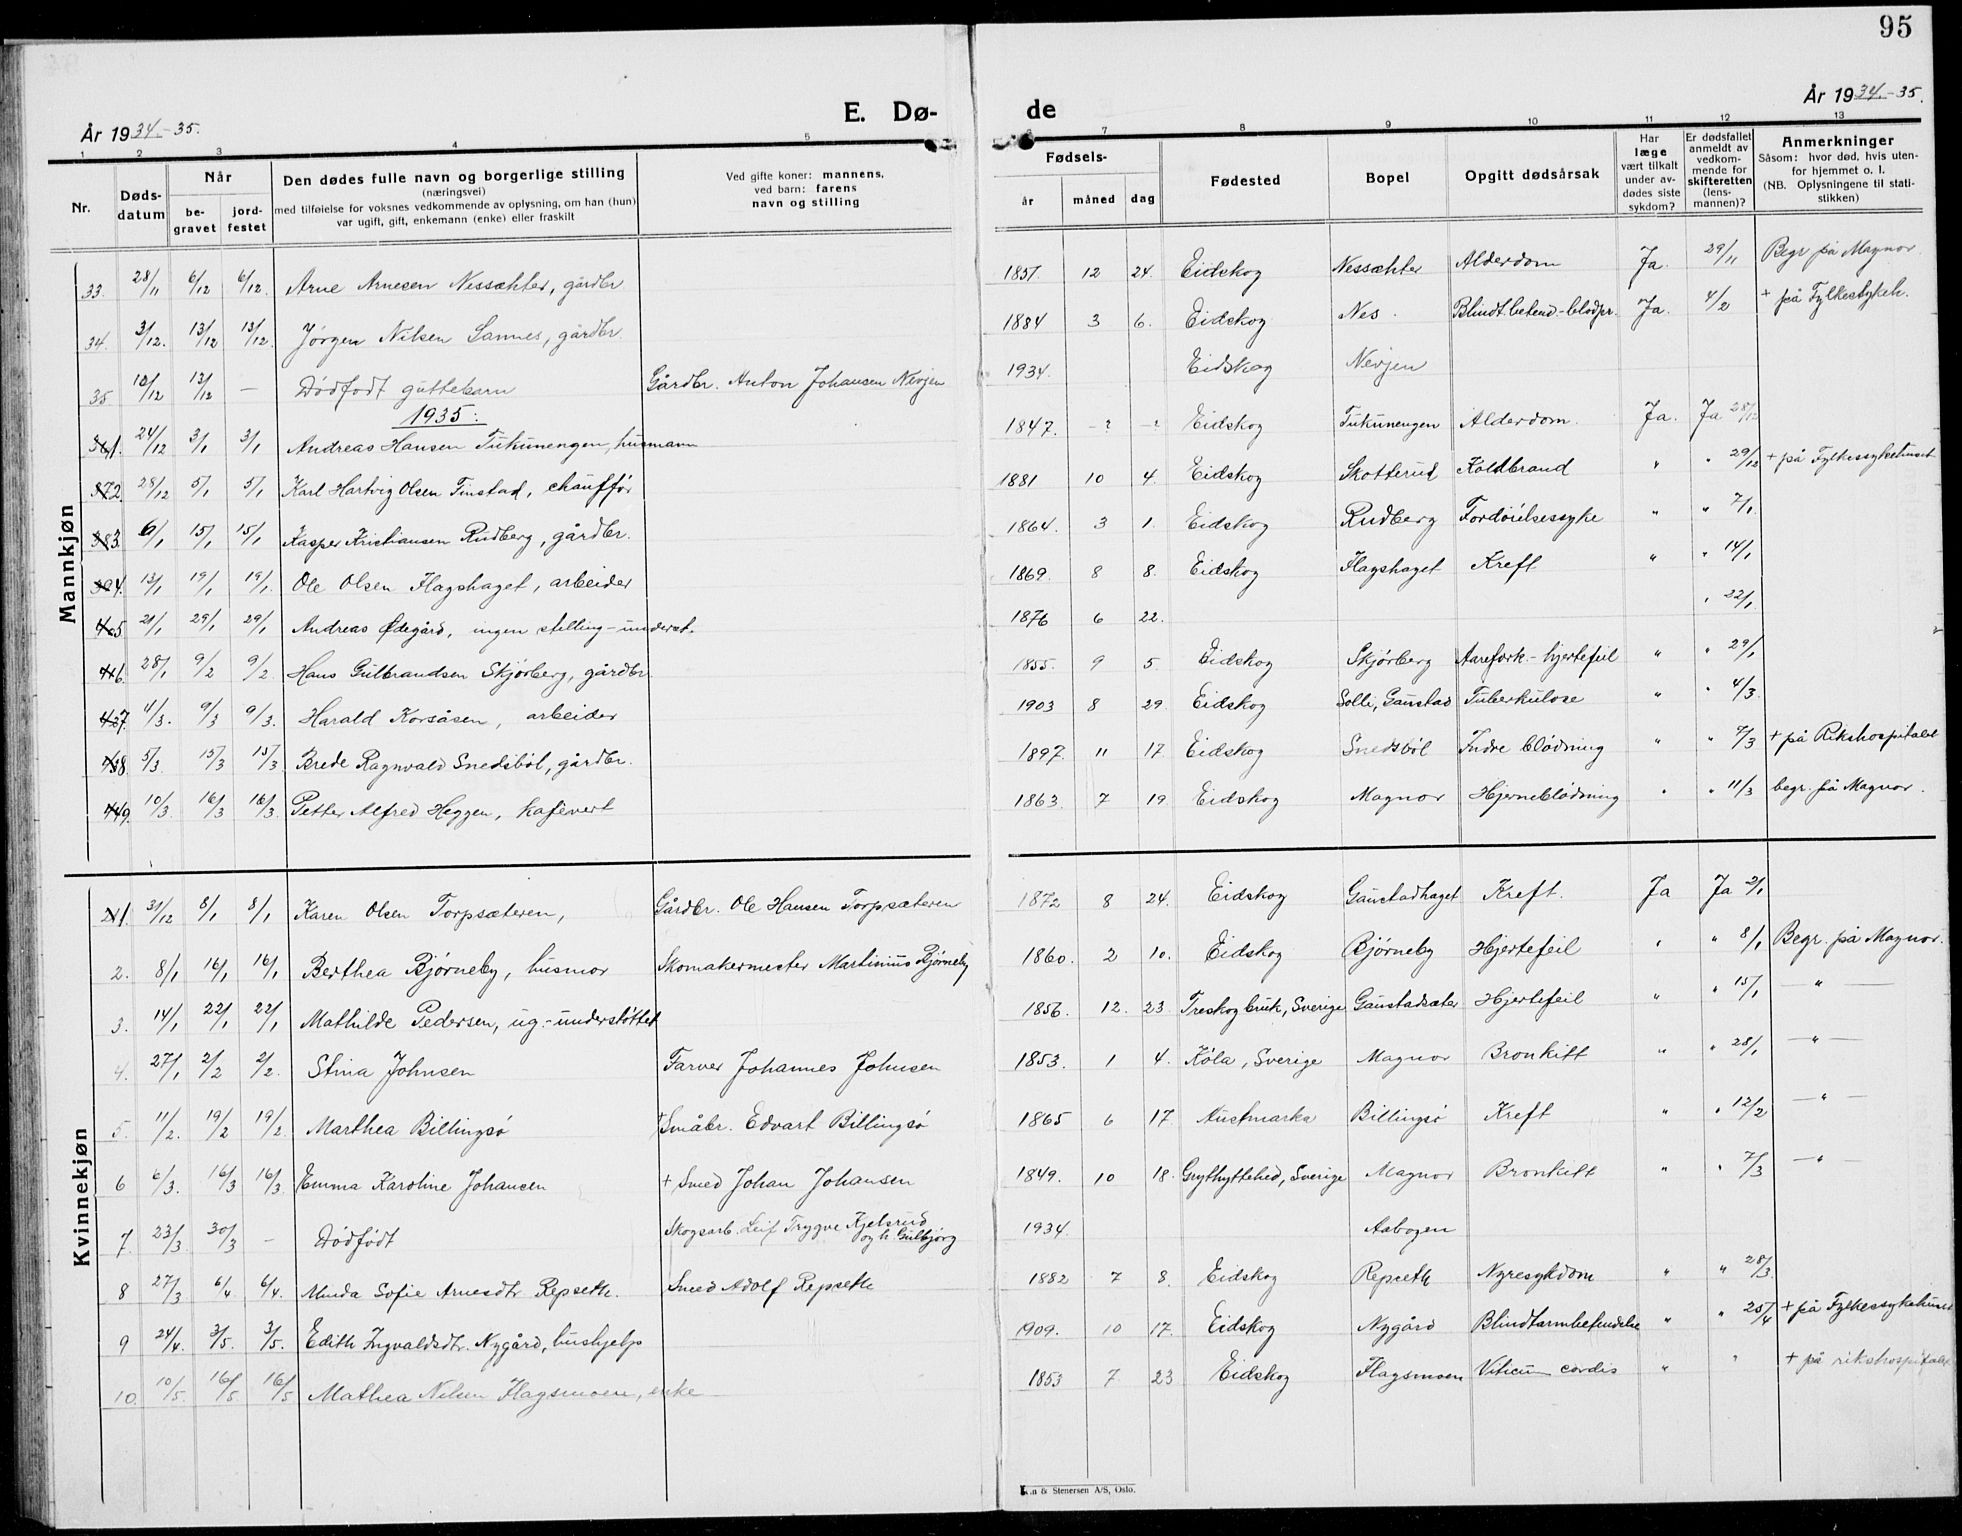 95
År 1934.-35.
E. Dø-
de
År 1934.-35.
1 2 3 4 5
6 7 8 9 10 11 12 13
Nr.
Døds-
datum
Når
be-
gravet
jord-
festet
Den dødes fulle navn og borgerlige stilling
(næringsvei)
med tilføielse for voksnes vedkommende av oplysning, om han (hun)
var ugift, gift, enkemann (enke) eller fraskilt
Ved gifte koner: mannens,
ved barn: farens
navn og stilling
Fødsels-
år
måned
dag
Fødested
Bopel
Opgitt dødsårsak
Har
læge
vært tilkalt
under av-
dødes siste
sykdom?
Er dødsfallet
anmeldt av
vedkom-
mende for
skifteretten
(lens-
mannen)?
Anmerkninger
Såsom: hvor død, hvis uten-
for hjemmet o. l.
(NB. Oplysningene til stati-
stikken)
Mannkjøn
33. 28/11 6/12 6/12. Arne Arnesen Nessæhter, gårdbr 1851. 12 24. Eidskog Nessæhter Alderdom Ja. 29/11 Begr på Magnor
34. 3/12. 13/12 13/12. Jørgen Nilsen Sannes, gårdbr. 1884 3 6. Eidskog Nes. Blindt.betend.-blodpr. Ja. 4/2 + på Fylkesykeh.
35 10/12 13/12 — Dödfödt guttebarn Gårdbr. Anton Johansen Nevjen 1934. Eidskog Nevjen
1935:
1. 24/12 3/1 3/1 Andreas Hansen Tukunengen, husmann 1847. -? -? Eidskog Tukunengen Alderdom. Ja. Ja 28/12
2. 28/12 5/1 5/1 Karl Hartvig Olsen Tinstad, chauffør 1881 10 4. Eidskog Skotterud Koldbrand " " 29/12 + på Fylkessykehuset
3. 6/1 15/1 15/1 Kasper Kristiansen Rudberg, gårdbr. 1864. 3 1. Eidskog Rudberg Fordöielsessyke " " 7/1.
4. 13/1 19/1 19/1. Ole Olsen Flagshaget, arbeider 1869. 8 8. Eidskog Flagshaget Kreft " " 14/1
5 21/1 29/1 29/1 Andreas Ødegård, ingen stilling - underst. 1876 6 22. " 22/1
6. 28/1 9/2 9/2. Hans Gulbrandsen Skjörberg, gårdbr. 1855. 9 5. Eidskog Skjörberg Aarefork.- hjertefeil " " 29/1
7. 4/3. 9/3 9/3. Harald Korsåsen, arbeider 1903 8 29. Eidskog Solli, Gaustad Tuberkulose " " 4/3.
8. 5/3. 15/3 15/3 Brede Ragnvald Snedsböl, gårdbr. 1897. 11 17. Eidskog Snedsböl Indre blödning " " 7/3 + på Rikshospitalet
9. 10/3. 16/3 16/3. Petter Alfred Heggen, kafévert 1863. 7 19. Eidskog Magnor Hjerneblödning " " 11/3 begr. på Magnor.
Kvinnekjøn
1. 31/12 8/1 8/1 Karen Olsen Torpsæteren, Gårdbr. Ole Hansen Torpsæteren 1872 8 24. Eidskog Gaustadhaget Kreft. Ja Ja 2/1
2. 8/1 16/1 16/1. Berthea Bjørneby, husmor Skomakermester Martinius Bjørneby 1860. 2 10. Eidskog Bjørneby Hjertefeil " " 8/1 Begr. på Magnor.
3. 14/1 22/1 22/1 Mathilde Pedersen, ug.-understöttet 1856. 12. 23. Treskog bruk, Sverige Gaustadsæter Hjertefeil " " 15/1 — " —
4. 27/1 2/2 2/2. Stina Johnsen Farver Johannes Johnsen 1853. 1 4. Köla, Sverige Magnor Bronkitt " " 28/1 — " —
5. 11/2. 19/2 19/2. Marthea Billingsö + Småbr. Edvart Billingsö 1865 6 17. Austmarka Billingsö Kreft " " 12/2 — " —
6 6/3. 16/3 16/3 Emma Karoline Johansen + Smed Johan Johansen 1849. 10 18. Grythyttehed, Sverige Magnor Bronkitt " " 7/3 — " —
7. 23/3 30/3 — Dödfödt Skogsarb. Leif Trygve Kjelsrud
og h. Gulbjörg 1934. Aabogen
8 27/3 6/4 6/4. Minda Sofie Arnesdtr Repseth. Smed Adolf Repseth 1882 7 8. Eidskog Repseth Nyresykdom " " 28/3.
9 24/4. 3/5. 3/5. Edith Ingvaldsdtr. Nygård, hushjelp 1909. 10 17. Eidskog Nygård Blindtarmbetendelse " " 25/4 + på Fylkessykehuset
10. 10/5. 16/5 16/5 Mathea Nilsen Flagsmoen, enke 1853 7 23 Eidskog Flagsmoen Viticum cordis " " + på rikshospitalet
& Stenersen A/S, Oslo.